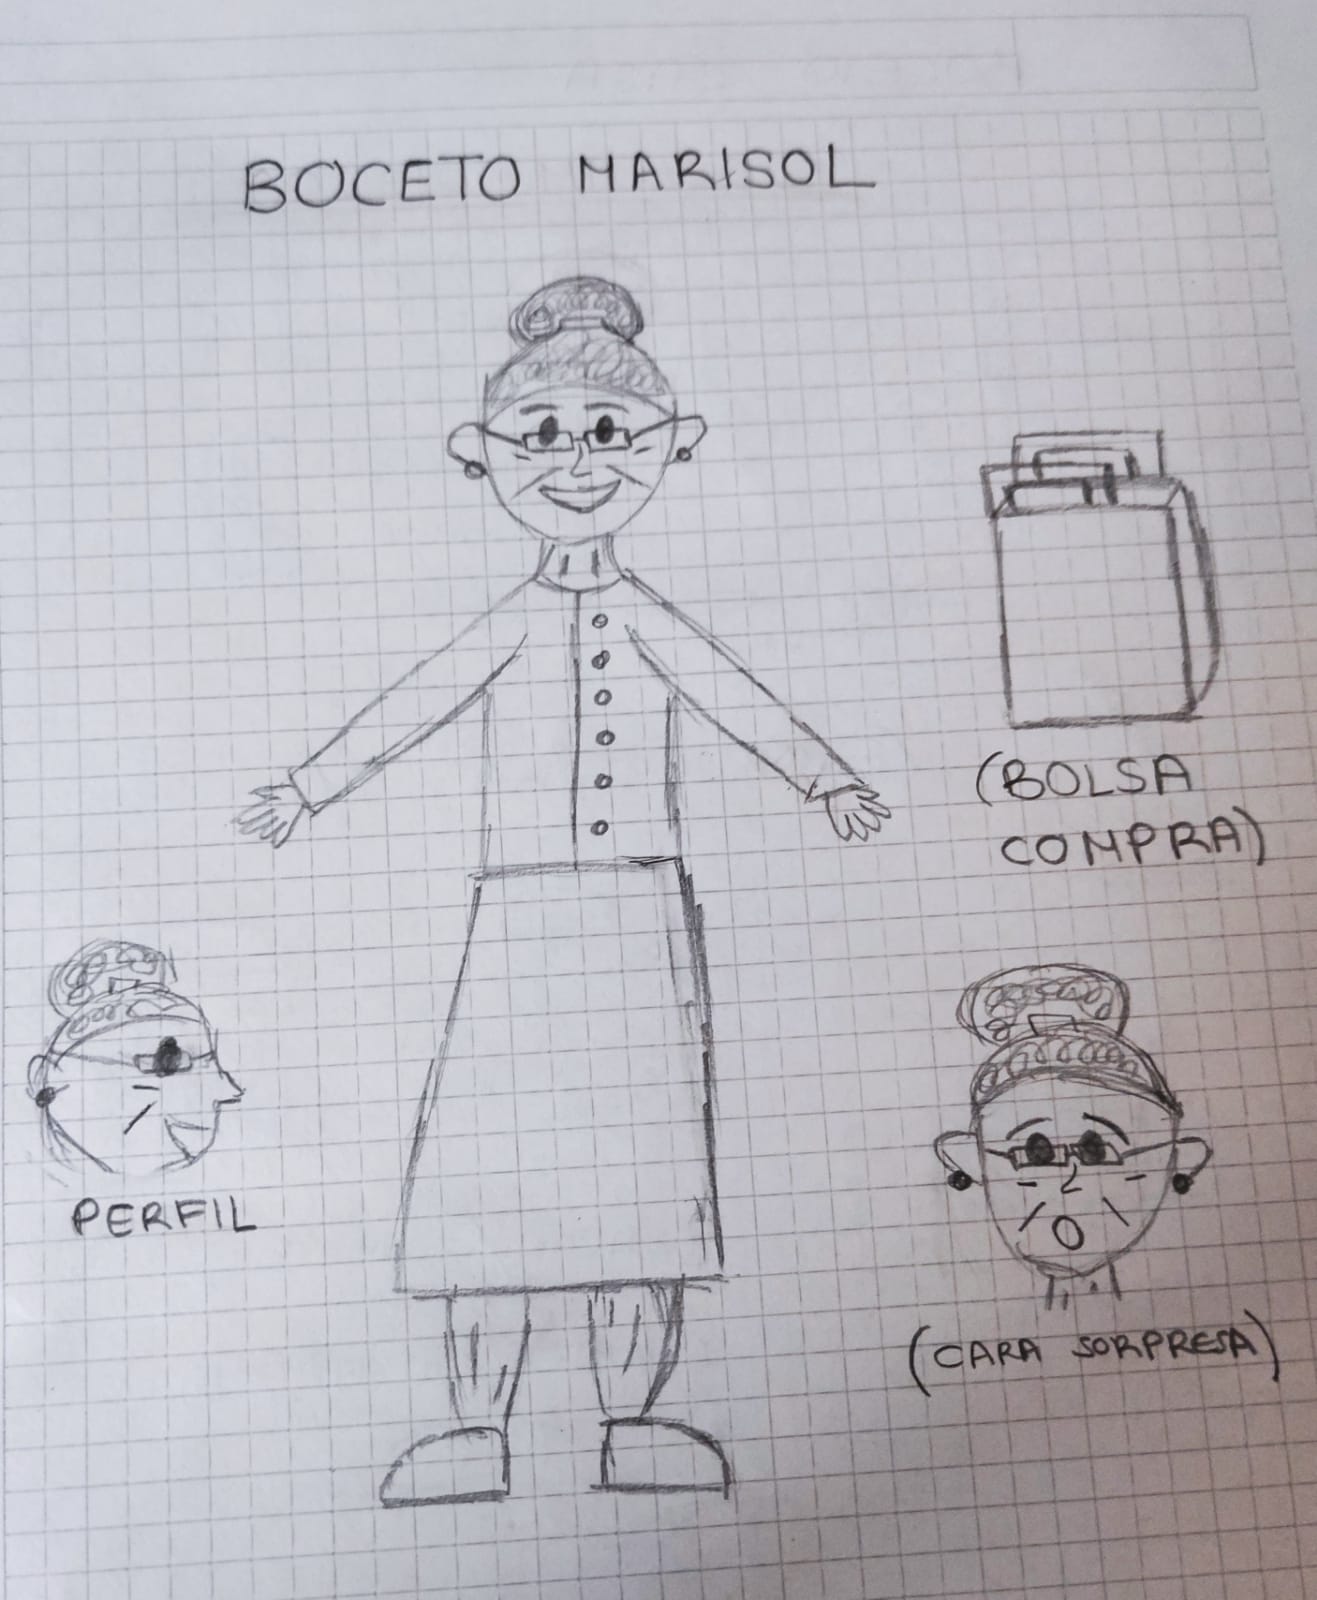 BOCETO MARISOL
(BOLSA
COMPRA)
PERFIL
(CARA SORPRESA)